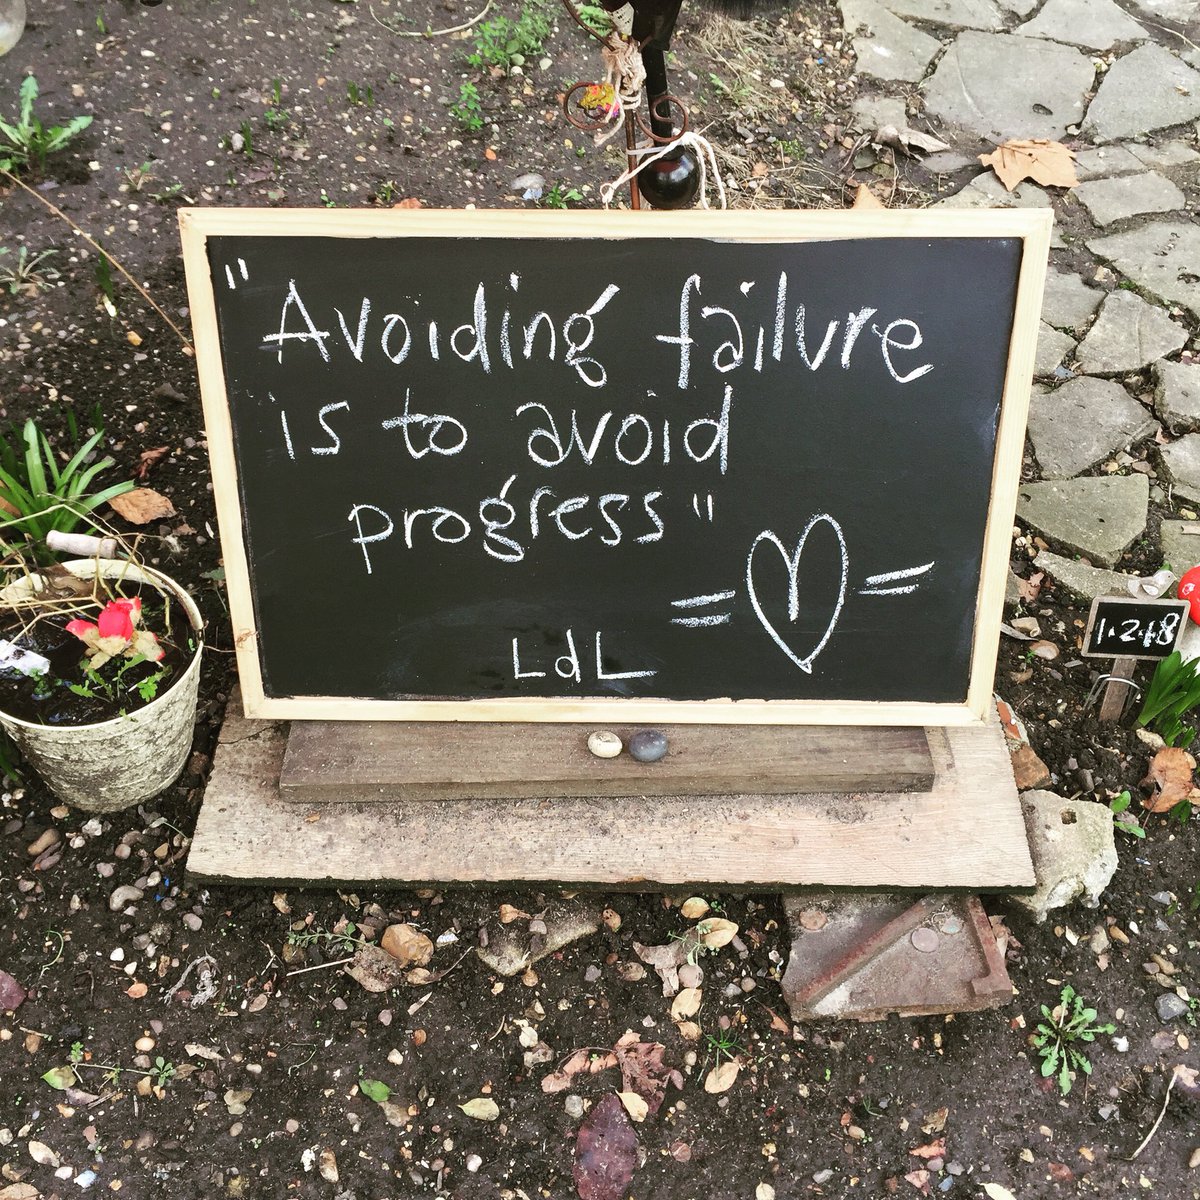 "Avoiding failure
is to avoid
progress"
LdL
1.2.18